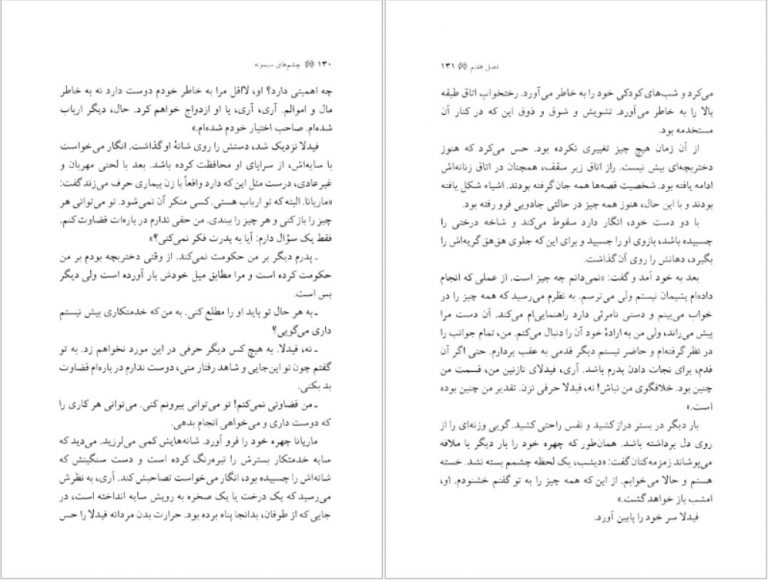 ۱۳۰ چشم‌های سیمونه
چه اهمیتی دارد؟ او، لااقل مرا به خاطر خودم دوست دارد نه به خاطر
مال و اموالم. آری، آری، با او ازدواج خواهم کرد. حال، دیگر ارباب
شده‌ام. صاحب اختیار خودم شده‌ام.»
فیدلا نزدیک شد، دستش را روی شانهٔ او گذاشت. انگار می‌خواست
با سایه‌اش، از سراپای او محافظت کرده باشد. بعد با لحنی مهربان و
غیرعادی، درست مثل این که دارد واقعاً با زن بیماری حرف می‌زند گفت:
«ماریانا. البته که تو ارباب هستی. کسی منکر آن نمی‌شود. تو می‌توانی هر
چیز را باز کنی و هر چیز را ببندی. من حقی ندارم در باره‌ات قضاوت کنم.
فقط یک سؤال دارم: آیا به پدرت فکر نمی‌کنی؟»
ـ پدرم دیگر بر من حکومت نمی‌کند. از وقتی دختربچه بودم بر من
حکومت کرده است و مرا مطابق میل خودش بار آورده است ولی دیگر
بس است.
ـ به هر حال تو باید او را مطلع کنی. به من که خدمتکاری بیش نیستم
داری می‌گویی؟
ـ نه، فیدلا. به هیچ کس دیگر حرفی در این مورد نخواهم زد. به تو
گفتم چون تو این‌جایی و شاهد رفتار منی، دوست ندارم در باره‌ام قضاوت
بد بکنی.
ـ من قضاوتی نمی‌کنم! تو می‌توانی بیرونم کنی. می‌توانی هر کاری را
که دوست داری و می‌خواهی انجام بدهی.
ماریانا چهره خود را فرو آورد. شانه‌هایش کمی می‌لرزید. می‌دید که
سایه خدمتکار بسترش را تیره‌رنگ کرده است و دست سنگینش که
شانه‌اش را چسبیده بود، انگار می‌خواست تصاحبش کند. آری، به نظرش
می‌رسید که یک درخت یا یک صخره به رویش سایه انداخته است، در
جایی که از طوفان، بدانجا پناه برده بود. حرارت بدن مردانه فیدلا را حس
فصل هفتم ۱۳۱
می‌کرد و شب‌های کودکی خود را به خاطر می‌آورد. رختخواب اتاق طبقه
بالا را به خاطر می‌آورد. تشویش و شوق و ذوق این که در کنار آن
مستخدمه بود.
از آن زمان هیچ چیز تغییری نکرده بود. حس می‌کرد که هنوز
دختربچه‌ای بیش نیست. راز اتاق زیر سقف، همچنان در اتاق زنانه‌اش
ادامه یافته بود. شخصیت قصه‌ها همه جان گرفته بودند. اشیاء شکل یافته
بودند و با این حال، هنوز همه چیز در حالتی جادویی فرو رفته بود.
با دو دست خود، انگار دارد سقوط می‌کند و شاخه درختی را
چسبیده باشد، بازوی او را چسبید و برای این که جلوی هق‌هق گریه‌اش را
بگیرد، دهانش را روی آن گذاشت.
بعد به خود آمد و گفت: «نمی‌دانم چه چیز است. از عملی که انجام
داده‌ام پشیمان نیستم ولی می‌ترسم. به نظرم می‌رسید که همه چیز را در
خواب می‌بینم و دستی نامرئی دارد راهنمایی‌ام می‌کند. آن دست مرا
پیش می‌راند، ولی من به ارادهٔ خود آن را دنبال می‌کنم. من، تمام جوانب را
در نظر گرفته‌ام و حاضر نیستم دیگر قدمی به عقب بردارم. حتی اگر آن
قدم، برای نجات دادن پدرم باشد. آری، فیدلای نازنین من، قسمت من
چنین بود. خلافگوی من نباش! نه، فیدلا حرفی نزن. تقدیر من چنین بوده
است.»
بار دیگر در بستر دراز کشید و نفس راحتی کشید. گویی وزنه‌ای را از
روی دل برداشته باشد. همان‌طور که چهره خود را بار دیگر با ملافه
می‌پوشاند زمزمه‌کنان گفت: «دیشب، یک لحظه چشمم بسته نشد. خسته
هستم و حالا می‌خوابم. از این که همه چیز را به تو گفتم خشنودم. او،
امشب باز خواهد گشت.»
فیدلا سر خود را پایین آورد.